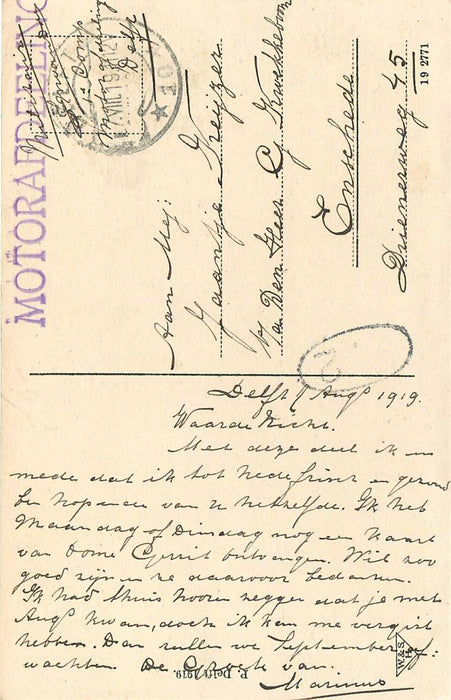 MOTORAFDEELING
Militair
1e Comp
Delft
Aan Mej:
Jaantje Freijzer
p/a Den Heer G Kwekkeboom
Enschede
Drienerweg 45
19 2771
Delft Augs 1919.
Waarde Nicht.
Met deze deel ik u
mede dat ik tot heden frisch en gezond
ben hopende van u hetzelfde. Ik heb
Maandag of Dinsdag nog een kaart
van Oome Gerrit ontvangen. Wil zoo
goed zijn en ze daarvoor bedanken.
Ik had thuis hooren zeggen dat je met
Augs kwam, doch ik kan me vergist
hebben. Dan zullen we September af:
wachten. De Groete van.
Marinus
P. Delft 1919.
W.&S.